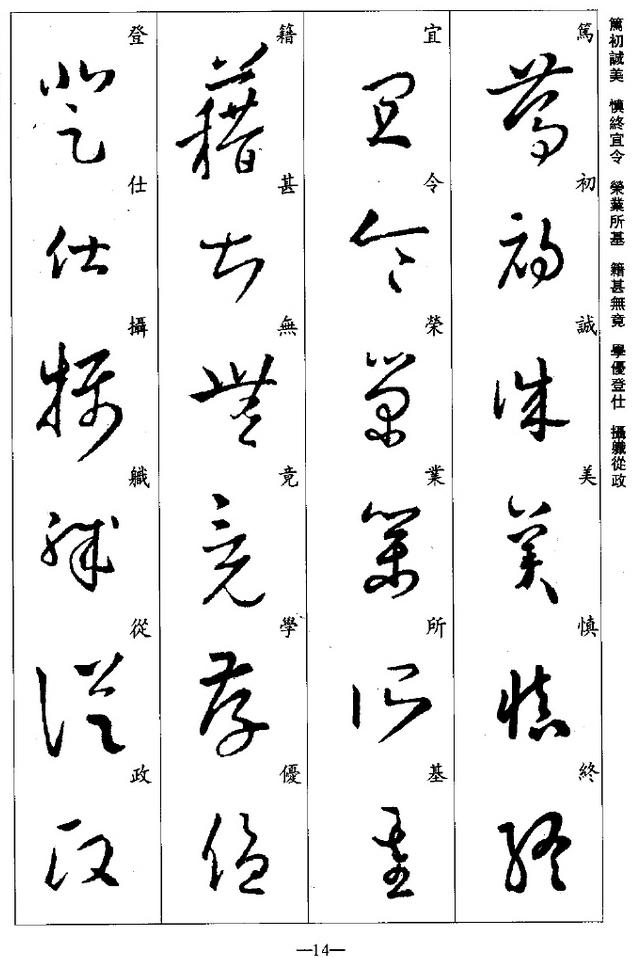 篤初誠美　慎終宜令　榮業所基　籍甚無竟　學優登仕　攝職從政
篤初誠美慎終
宜令榮業所基
籍甚無竟學優
登仕攝職從政
—14—